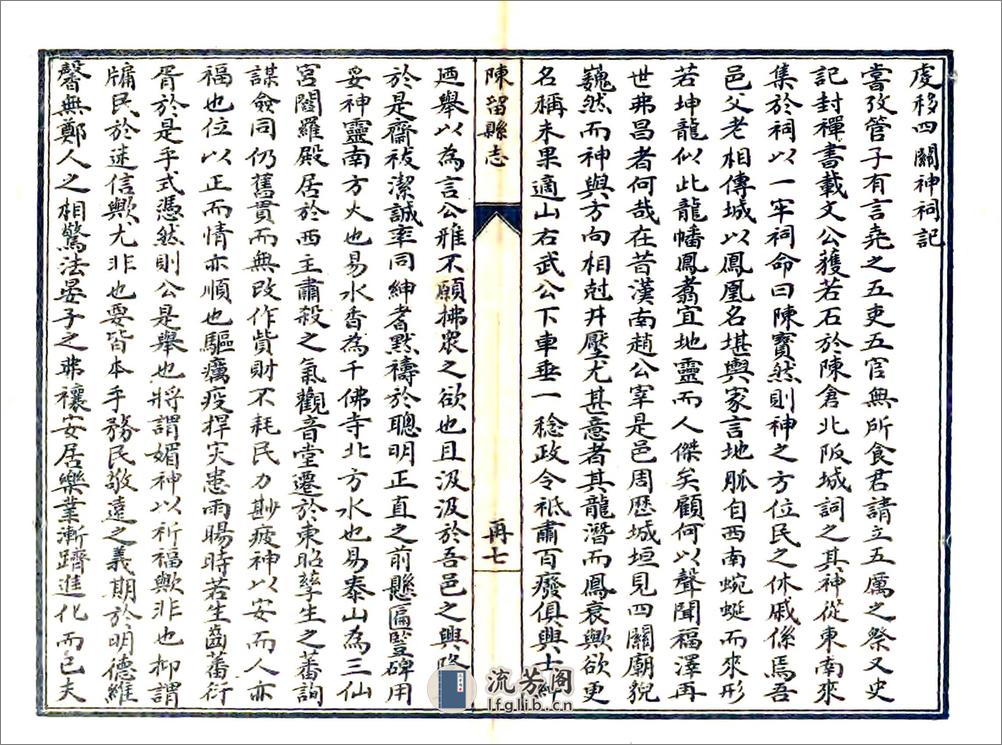 虔移四關神祠記
嘗攷管子有言堯之五吏五官無所食君請立五厲之祭又史
記封禪書載文公獲若石於陳倉北阪城詞之其神從東南來
集於祠以一牢祠命曰陳寶然則神之方位民之休戚係焉吾
邑父老相傳城以鳳凰名堪輿家言地脈自西南蜿蜒而來形
若坤龍似此龍幡鳳翥宜地靈而人傑矣顧何以聲聞福澤再
世弗昌者何哉在昔漢南趙公宰是邑周歷城垣見四關廟貌
巍然而神與方向相尅井壓尤甚意者其龍潛而鳳衰歟欲更
名稱未果適山右武公下車垂一稔政令祗肅百廢俱興士紳
陳留縣志
再七
迺舉以為言公雅不願拂眾之欲也且汲汲於吾邑之興隆
於是齋祓潔誠率同紳耆默禱於聰明正直之前懸匾豎碑用
妥神靈南方火也易水香為千佛寺北方水也易泰山為三仙
宮閻羅殿居於西主肅殺之氣觀音堂遷於東昭孳生之蕃詢
謀僉同仍舊貫而無改作貲財不耗民力尠疲神以安而人亦
福也位以正而情亦順也驅癘疫捍灾患雨暘時若生齒蕃衍
胥於是乎式憑然則公是舉也將謂媚神以祈福歟非也抑謂
牖民於迷信歟尤非也要皆本乎務民敬遠之義期於明德維
馨無鄭人之相驚法晏子之弗禳安居樂業漸躋進化而已夫
流芳阁
lfglib.cn